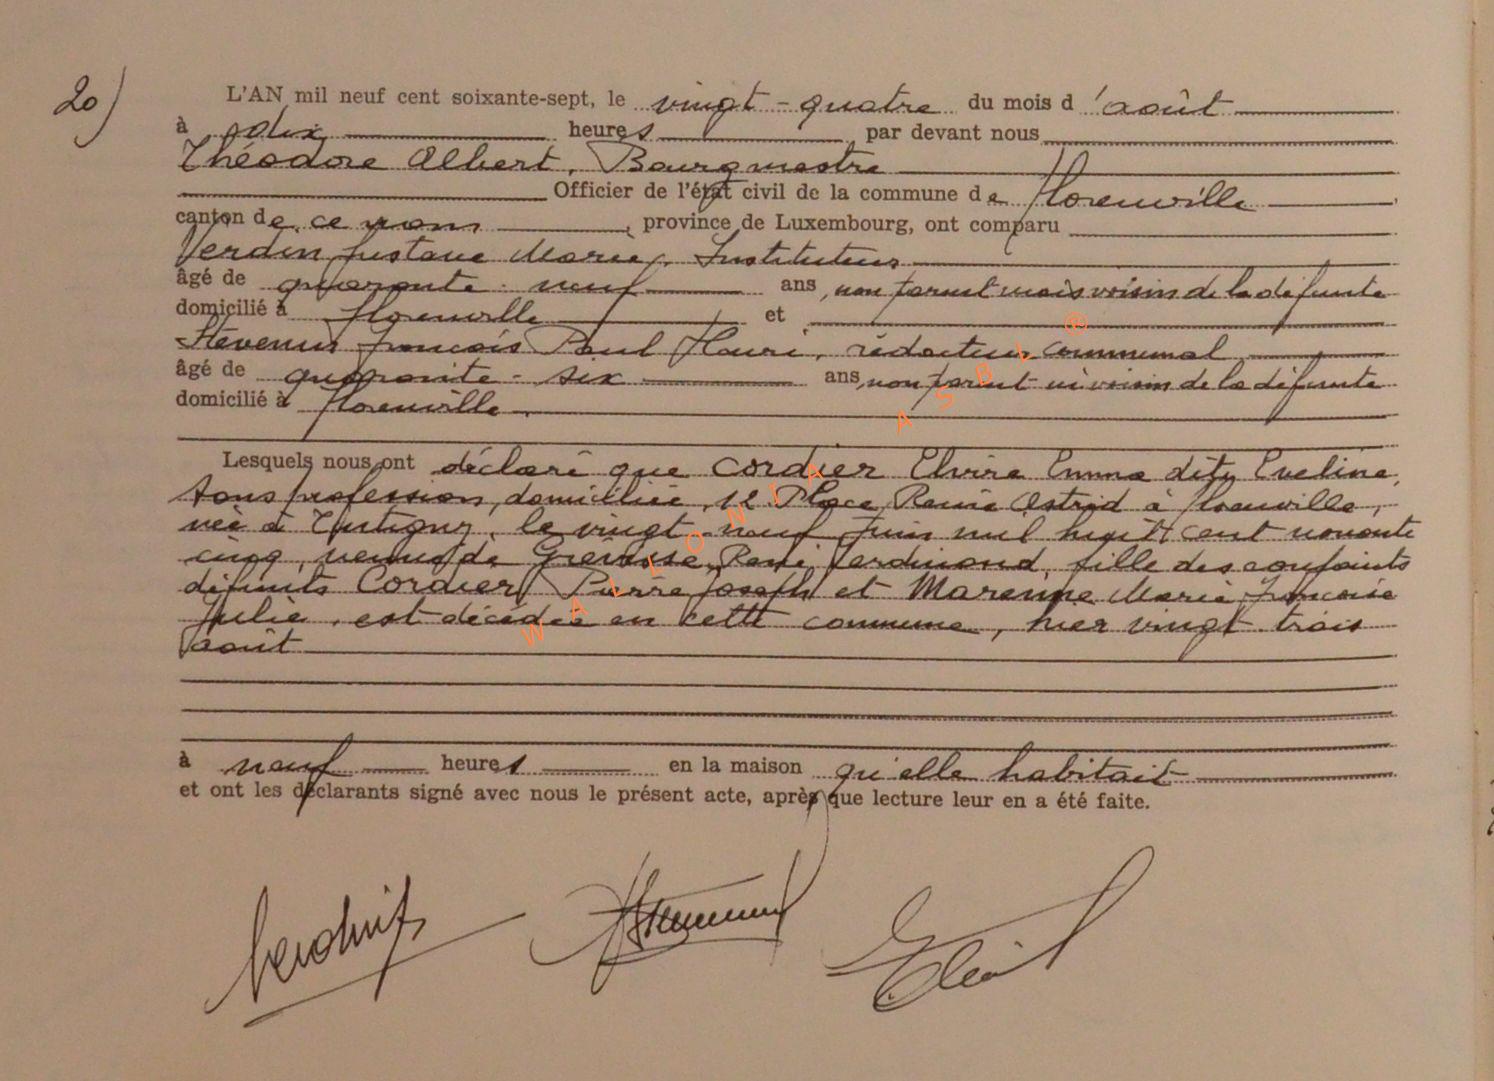 20)
L'AN mil neuf cent soixante-sept, le vingt-quatre du mois d'août
à dix heures par devant nous
Théodore Albert, Bourgmestre
Officier de l'état civil de la commune de Florenville
canton de ce nom, province de Luxembourg, ont comparu
Verdin Gustave Marie, Instituteur
âgé de quarante-neuf ans, non parent mais voisin de la défunte
domicilié à Florenville et
Stevenus François Paul Henri, rédacteur communal
âgé de quarante-six ans, non parent ni voisin de la défunte
domicilié à Florenville.
Lesquels nous ont déclaré que Cordier Elvire Emma dite Eveline,
sans profession, domiciliée, 12 Place Reine Astrid à Florenville,
née à Tintigny, le vingt-neuf juin mil huit cent nonante
cinq, veuve de Gresse, René Ferdinand, fille des conjoints
défunts Cordier Pierre Joseph et Marenne Marie Françoise
Julie, est décédée en cette commune, hier vingt trois
août
à neuf heures en la maison qu'elle habitait
et ont les déclarants signé avec nous le présent acte, après que lecture leur en a été faite.
WALLONIA ASBL ®